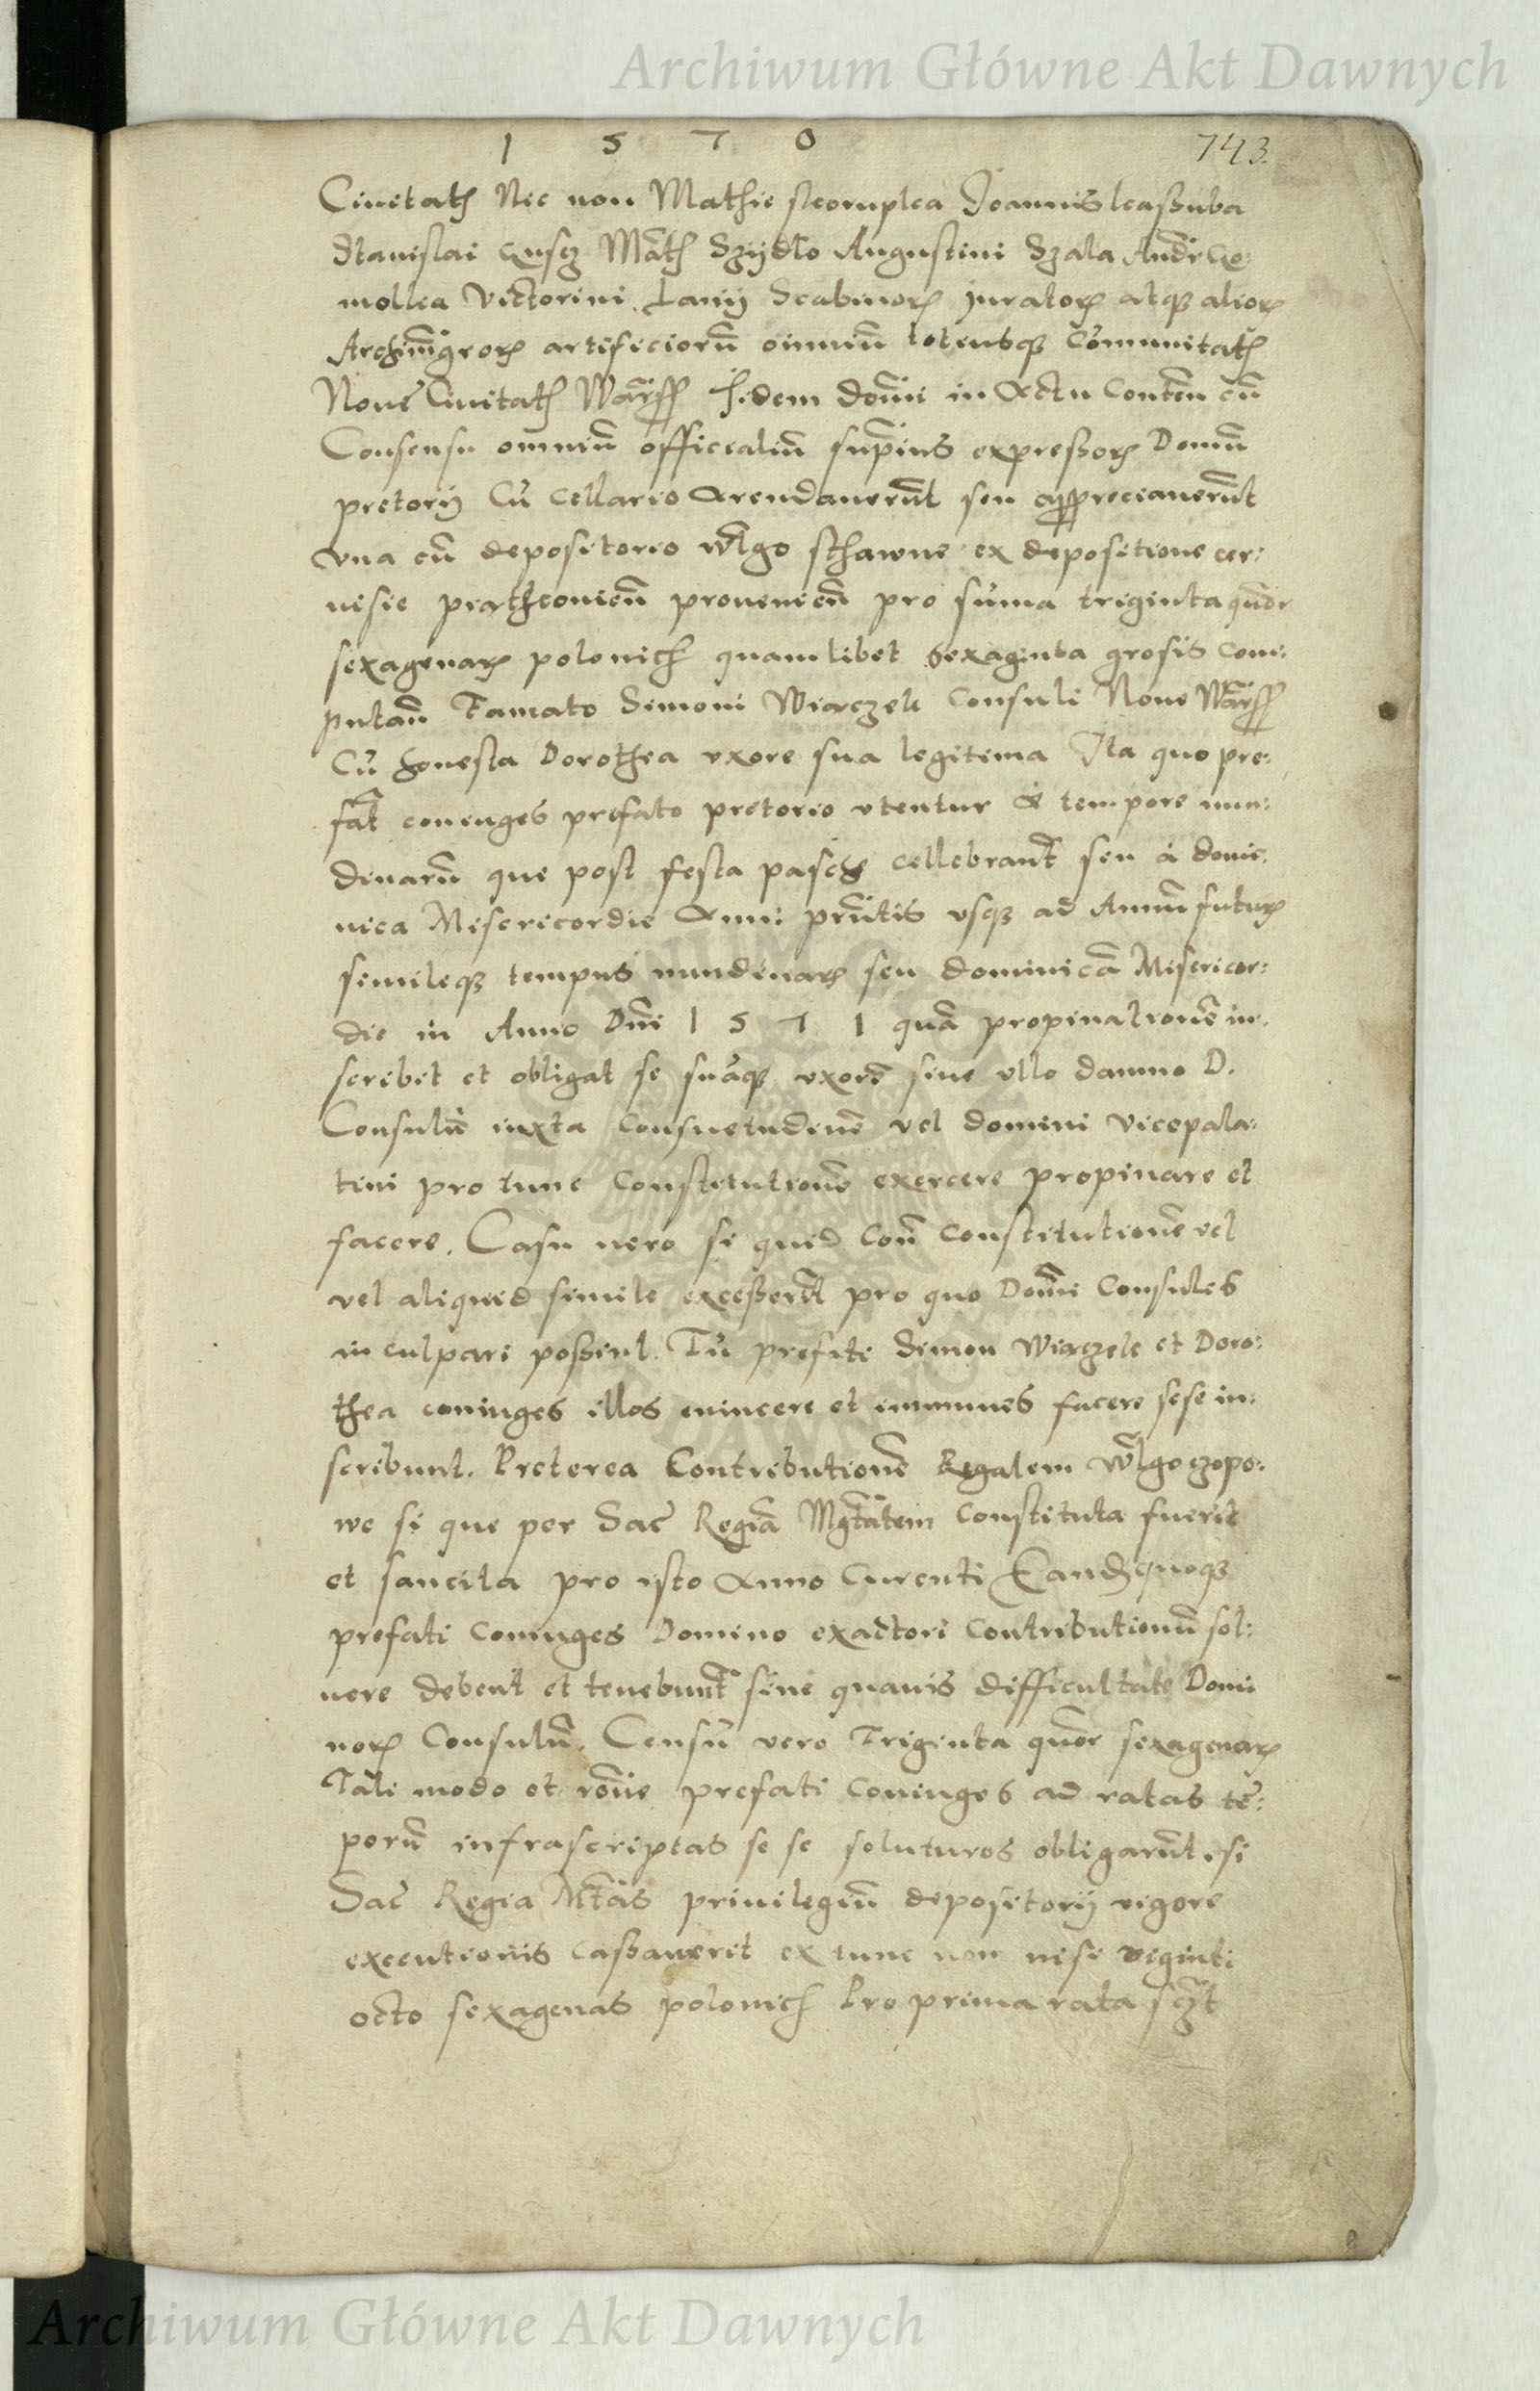 Archiwum Główne Akt Dawnych
1 5 7 0
743.
Ciuitatꝭ Nec non Mathie skorupka Joannis kaßuba
Stanislai Matꝭ Szÿdlo Augustini Szala Andr
molka Victorini Lanij Scabinorꝝ juratorꝝ atqꝫ aliorꝝ
artificiorū oīmniū totiusqꝫ Cōmunitatꝭ
Noue Ciuitatꝭ Warss Jidem domī in Actu Conten cū
Consensu omniū officialiū supīus expreßorꝝ Domū
pretorij Cū Cellario Arendauerūt seu appreciauerūt
vna cū depositorio wlgo schawne ex depositione cer:
uisie proueniēn pro sūma triginta quōr
sexagenarꝝ polonicꝭ quamlibet Sexaginta grosis com:
putan̄ Famato Simoni Wiaczek Consuli Noue Warss
Cū honesta Dorothea vxore sua legitima Ita quo pre:
fat coniuges prefato pretorio vtentur a tempore nun:
dinarū que post festa pasche Cellebrant seu a domi:
nica Misericordie Anni prūtis vsqꝫ ad Annū futurꝝ
simileqꝫ tempus nundinarꝝ seu dominicā Misericor:
die in Anno Dnī 1 5 7 1 quā propinationē in:
scribit et obligat se suāqꝫ vxorē sine vllo damno D.
Consulū iuxta Consuetudinē vel domini vicepala:
tini pro tunc Constitutionē exercere propinare et
facere. Casu vero si quid Con̄ Constitutionē vel
vel aliquid simile exceßerīt pro quo Domī Consules
in culpari poßint. Tū prefati Simon Wiaczek et Doro:
thea coniuges illos euincere et immunes facere sese in:
scribunt. Preterea Contributionē Regalem wlgo czopo:
we si que per Sac̄ Regiā Mgtātem Constituta fuerit
et sancita pro isto Anno Curenti Eandꝫ quoqꝫ
prefati Coniuges Domino exactori Contributionū sol:
uere debent et tenebunt sine quauis difficultate Domi
norꝝ Consulū. Censū vero Triginta quōr sexagenarꝝ
Tali modo et rōne prefati Coniuges ad ratas tē:
porū infrascriptas se se soluturos obligarūt. si
Sac̄ Regia Mtās priuilegiū depositorij vigore
executionis Caßauerit ex tunc non nisi viginti
octo sexagenas polonicꝭ Pro prima rata
Archiwum Główne Akt Dawnych